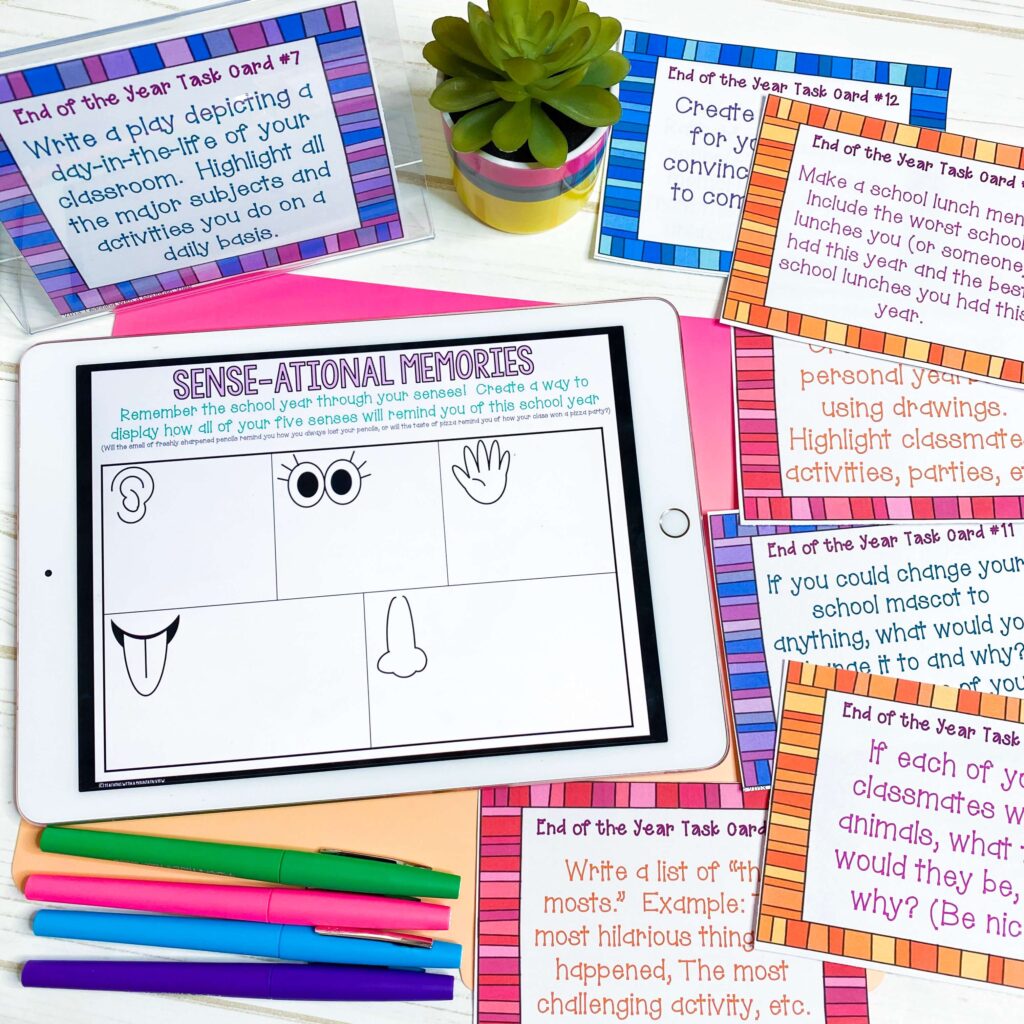 End of the Year Task Card #7
Write a play depicting a
day-in-the-life of your
classroom. Highlight all
the major subjects and
activities you do on a
daily basis.
End of the Year Task Card #12
Create
for
convinc
to com
End of the Year Task Card
Make a school lunch men
Include the worst school
lunches you (or someone)
had this year and the best
school lunches you had this
year.
personal year
using drawings.
Highlight classmate
activities, parties, e
SENSE-ATIONAL MEMORIES
Remember the school year through your senses! Create a way to
display how all of your five senses will remind you of this school year
(Will the smell of freshly sharpened pencils remind you how you always lost your pencils, or will the taste of pizza remind you of how your class won a pizza party?)
End of the Year Task Card #11
If you could change your
school mascot to
anything, what would yo
it to and why?
of you
End of the Year Task
If each of yo
classmates w
animals, what
would they be,
why? (Be nic
End of the Year Task Card
Write a list of "th
mosts." Example:
most hilarious thing
happened, The most
challenging activity, etc.